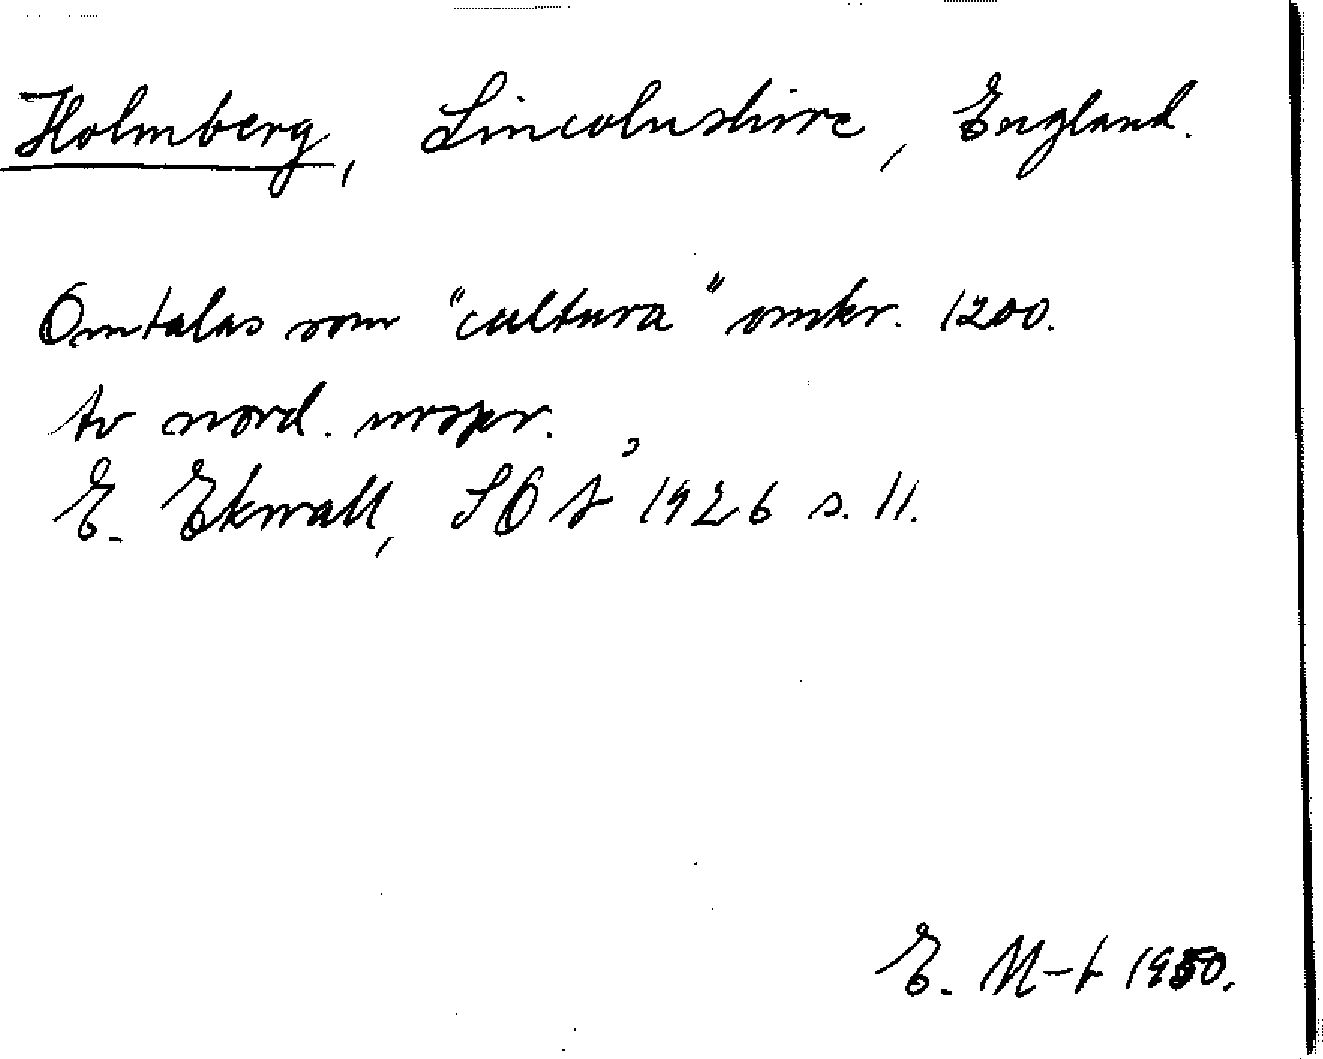 Holmberg, Lincolnshire, England.
Omtalas som "cultura" omkr. 1200.
Av nord. urspr.
E. Ekwall, SOÅ 1926 s. 11.
E. M-t 1950.